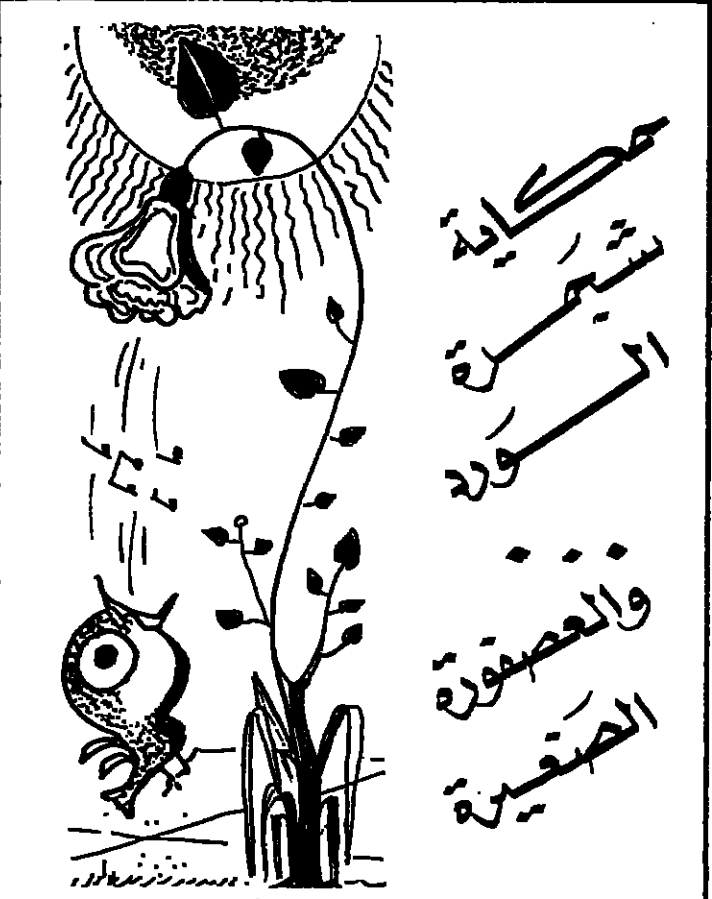 حكاية
شَجرة
الوَرد
...
والعصفورة
الصَغيرة